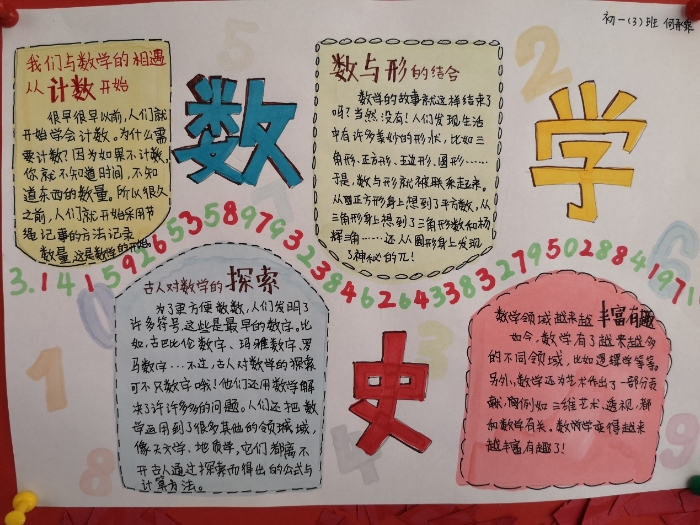 初一(3)班
我们与数学的相遇
从计数开始
很早很早以前,人们就
开始学会计数。为什么需
要计数?因为如果不计数,
你就不知道时间,不知
道东西的数量。所以很久
之前,人们就开始采用节
绳记事的方法记录
数量,这是数学的开始。
数
数与形的结合
数学的故事就这样结束了
吗?当然没有!人们发现生活
中有许多美妙的形状,比如三
角形、正方形、五边形、圆形……
于是,数与形就被联系起来。
从正方形身上想到了平方数,从
三角形身上想到了三角形数和杨
辉三角……还从圆形身上发现
了神秘的π!
学
3.1415926535897932384626433832795028841971
古人对数学的探索
为了更方便数数,人们发明了
许多符号,这些是最早的数字。比
如,古巴比伦数字、玛雅数字、罗
马数字……不过,古人对数学的探索
可不只数字哦!他们还用数学解
决了许许多多的问题。人们还把数
学运用到了很多其他的领域域,
像天文学、地质学,它们都离不
开古人通过探索而得出的公式与
计算方法。
史
数学领域越来越丰富有趣
如今,数学有了越来越多
的不同领域,比如逻辑学等等。
另外,数学还为艺术作出了一部分贡
献,例如三维艺术、透视,都
和数学有关。数学变得越来
越丰富有趣了!
5
2
7
6
0
1
3
8
4
9